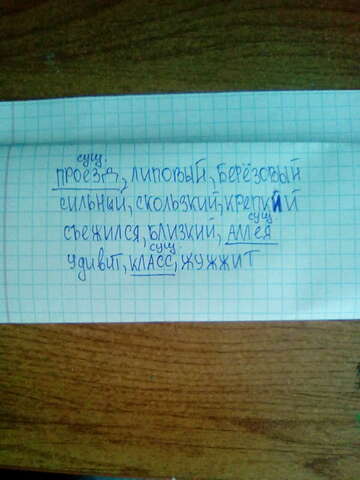 сущ.
проезд, липовый, берёзовый
сильный, скользкий, крепкий
сущ
съежился, близкий, аллея
сущ.
удивит, класс, жужжит